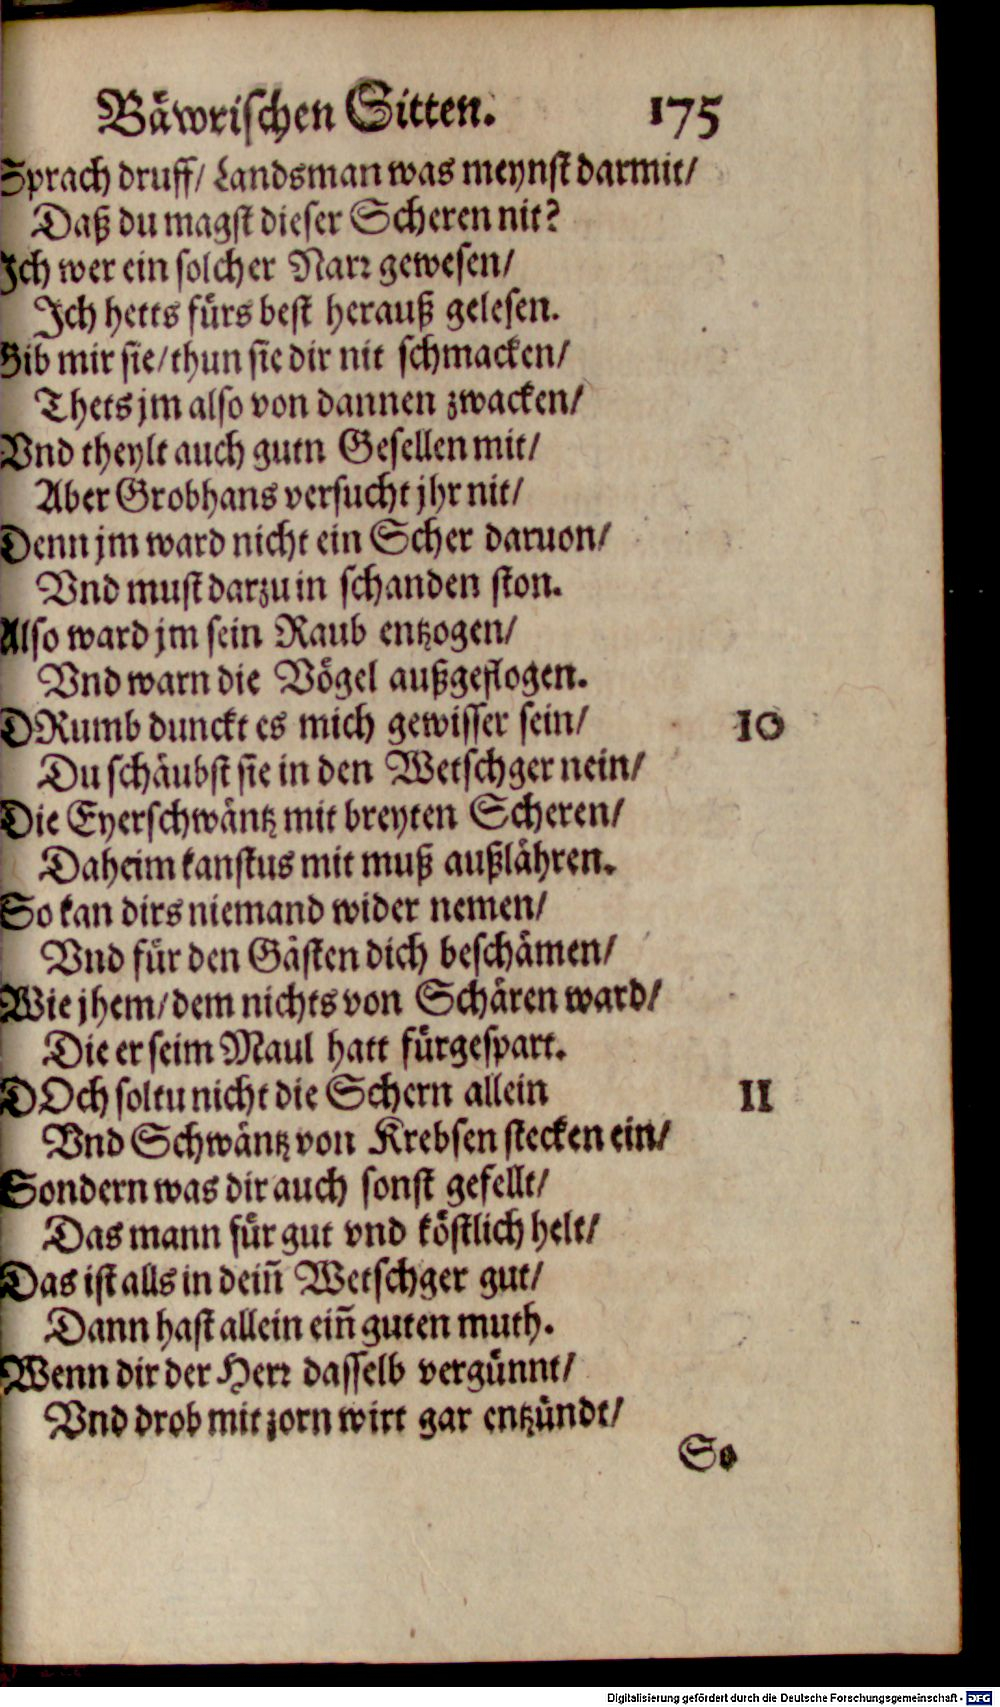 Bäwrischen Sitten. 175
Sprach druff/ Landsman was meynst darmit/
Daß du magst dieser Scheren nit?
Ich wer ein solcher Narr gewesen/
Ich hetts fürs best herauß gelesen.
Gib mir sie/ thun sie dir nit schmacken/
Thets jm also von dannen zwacken/
Vnd theylt auch gutn Gesellen mit/
Aber Grobhans versucht jhr nit/
Denn jm ward nicht ein Scher daruon/
Vnd must darzu in schanden ston.
Also ward jm sein Raub entzogen/
Vnd warn die Vögel außgeflogen.
DRumb dunckt es mich gewisser sein/ 10
Du schäubst sie in den Wetschger nein/
Die Eyerschwäntz mit breyten Scheren/
Daheim kanstus mit muß außlähren.
So kan dirs niemand wider nemen/
Vnd für den Gästen dich beschämen/
Wie jhem/ dem nichts von Schären ward/
Die er seim Maul hatt fürgespart.
DOch soltu nicht die Schern allein 11
Vnd Schwäntz von Krebsen stecken ein/
Sondern was dir auch sonst gefellt/
Das mann für gut vnd köstlich helt/
Das ist alls in deiñ Wetschger gut/
Dann hast allein eiñ guten muth.
Wenn dir der Herr dasselb vergünnt/
Vnd drob mit zorn wirt gar entzündt/
So
Digitalisierung gefördert durch die Deutsche Forschungsgemeinschaft - DFG